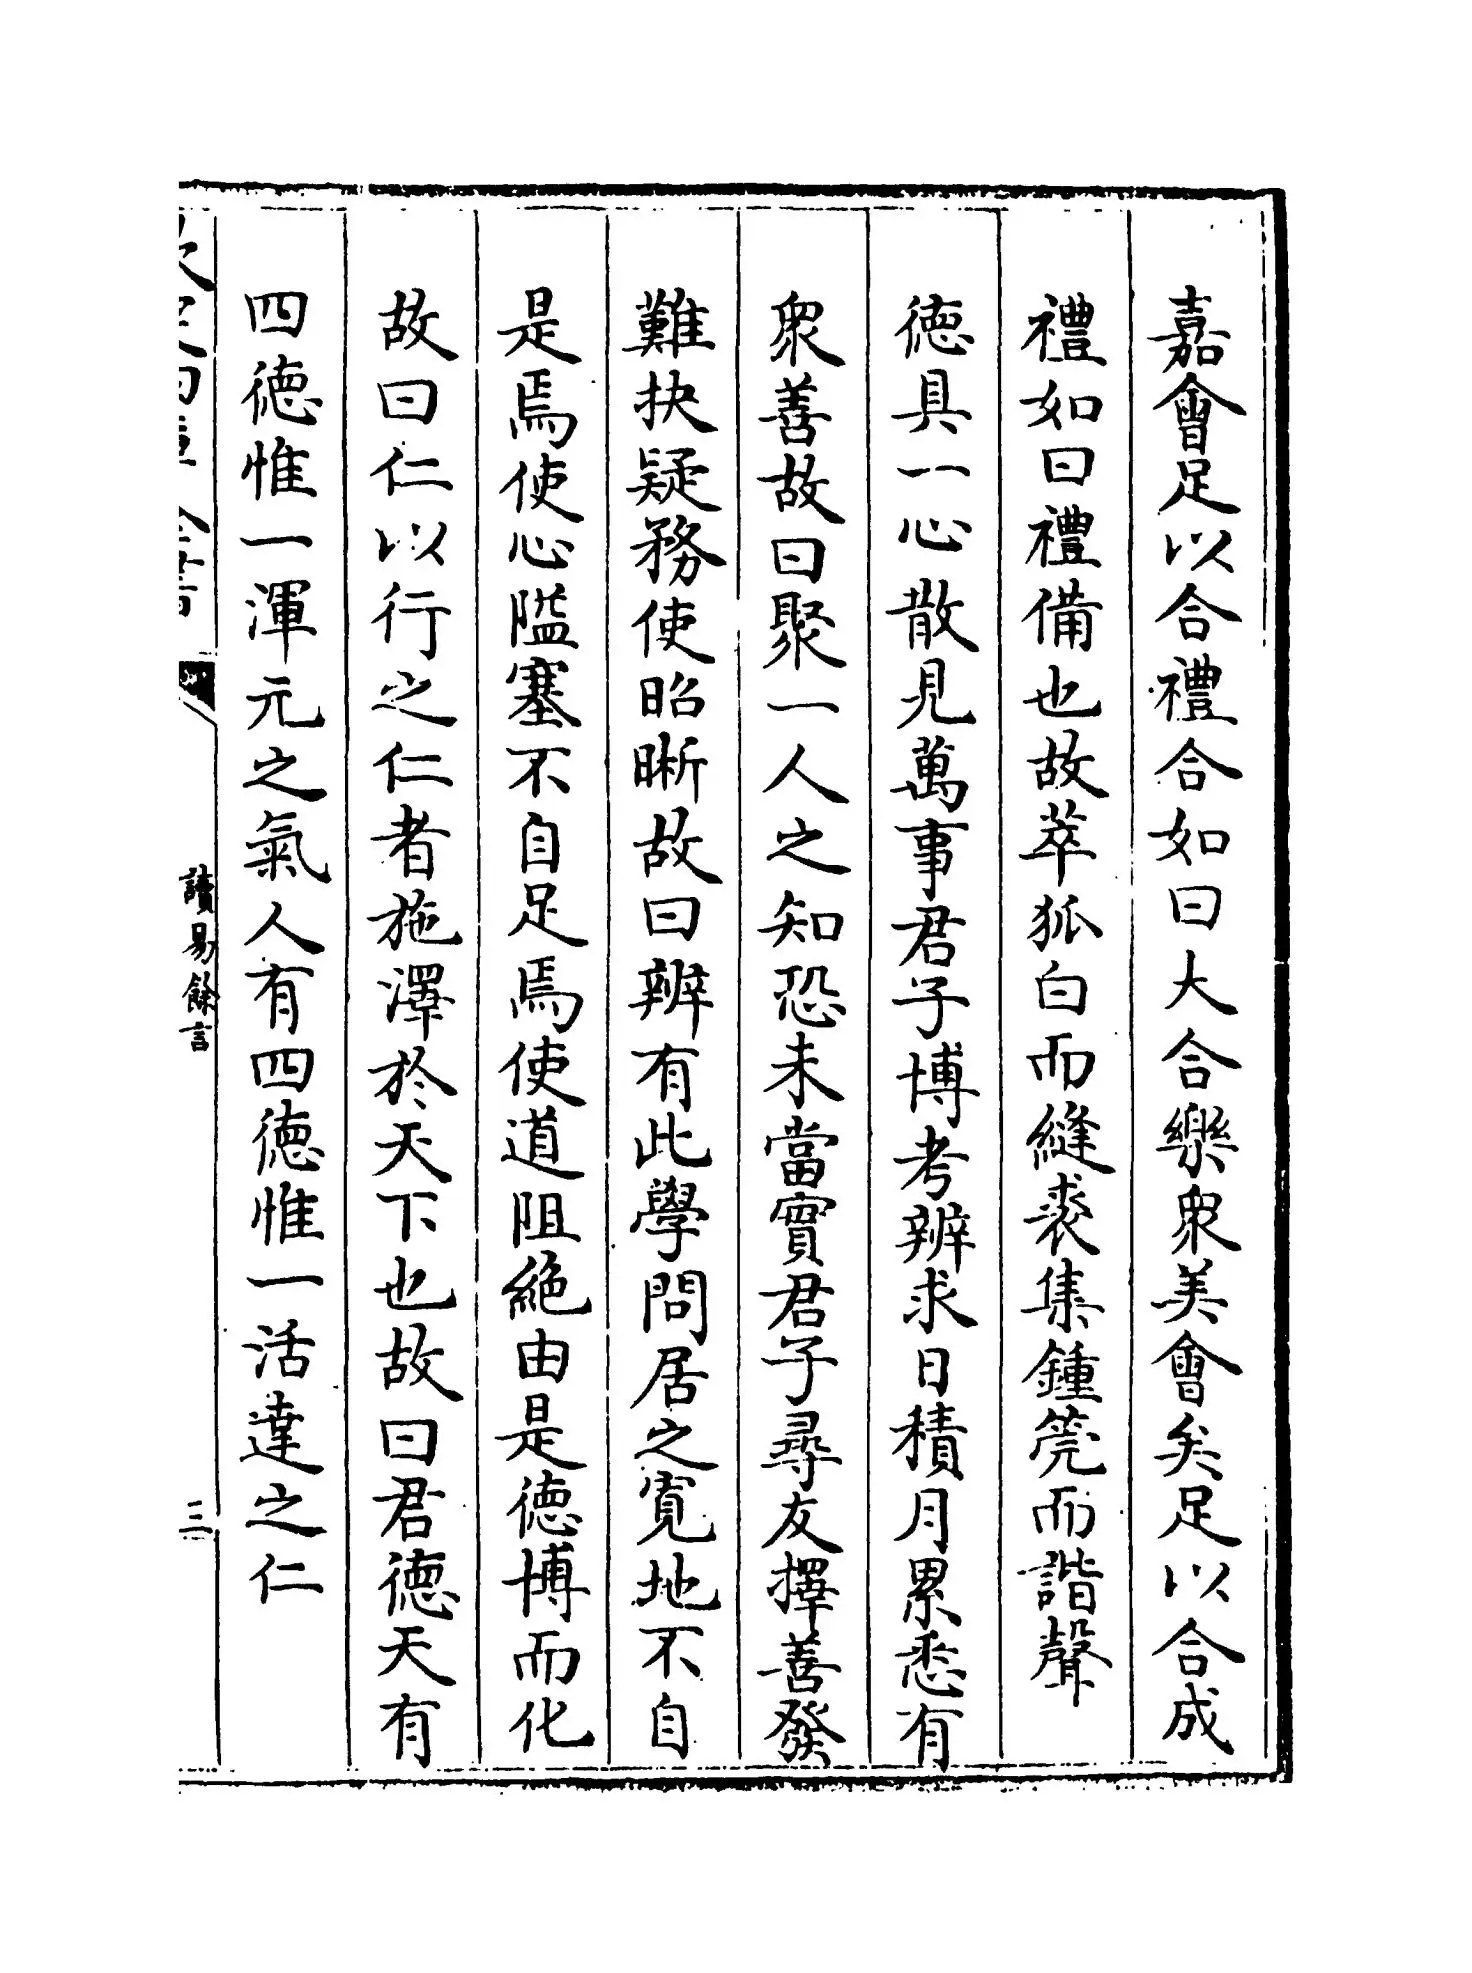 嘉會足以合禮合如曰大合樂衆美會矣足以合成
禮如曰禮備也故萃狐白而縫裘集鍾筦而諧聲
德具一心散見萬事君子博考辨求日積月累悉有
衆善故曰聚一人之知恐未當實君子尋友擇善發
難抉疑務使昭晰故曰辨有此學問居之寛地不自
是焉使心隘塞不自足焉使道阻絶由是德博而化
故曰仁以行之仁者施澤於天下也故曰君德天有
四德惟一渾元之氣人有四德惟一活達之仁
欽定四庫全書
讀易餘言
三